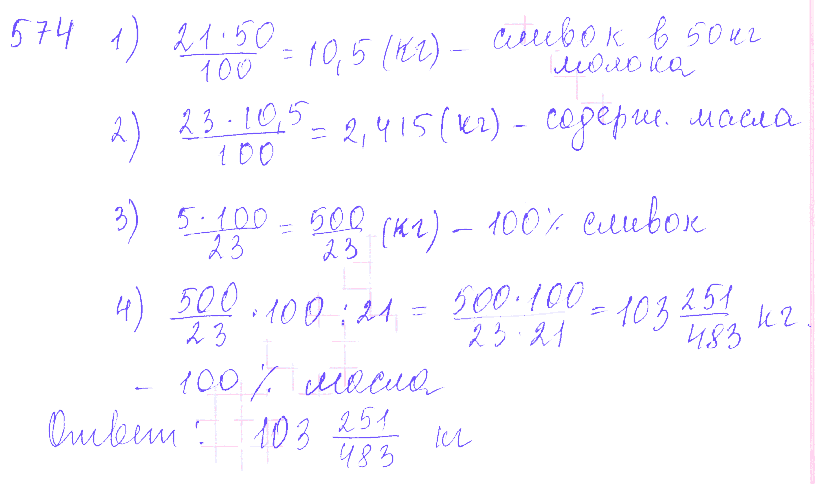 574 1) 21·50/100 = 10,5 (кг) – сливок в 50 кг
молока
2) 23·10,5/100 = 2,415 (кг) – содерж. масла
3) 5·100/23 = 500/23 (кг) – 100% сливок
4) 500/23 · 100 : 21 = 500·100/23·21 = 103 251/483 кг.
– 100% масла
Ответ: 103 251/483 кг